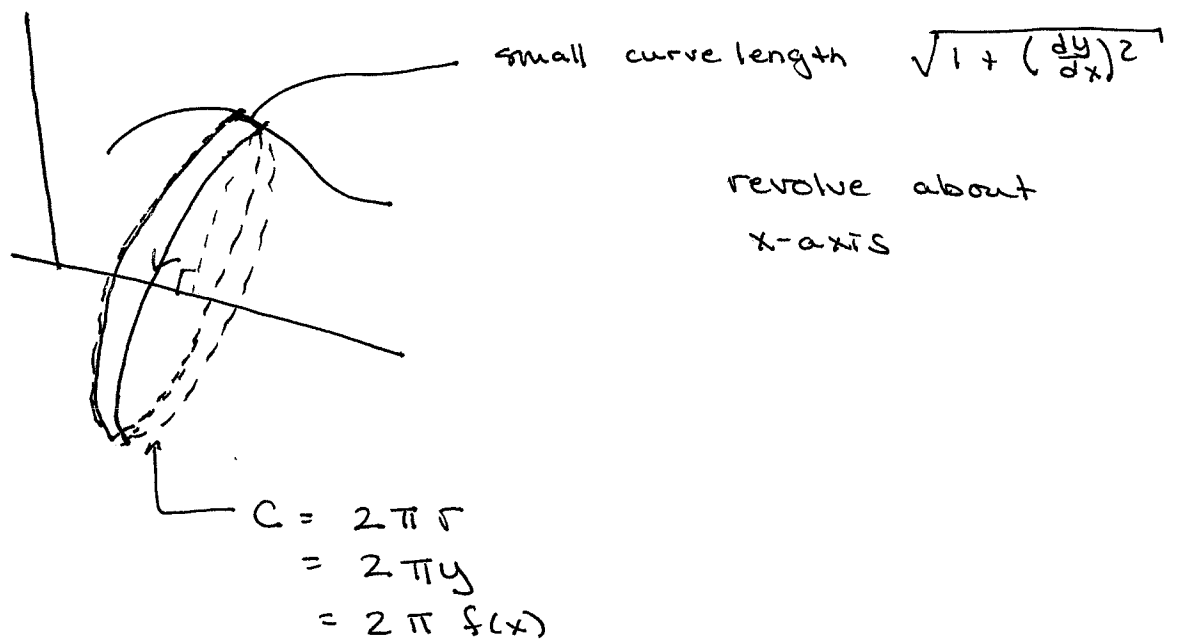 small curve length √1 + (dy/dx)2
revolve about
x-axis
C = 2πr
= 2πy
= 2π f(x)